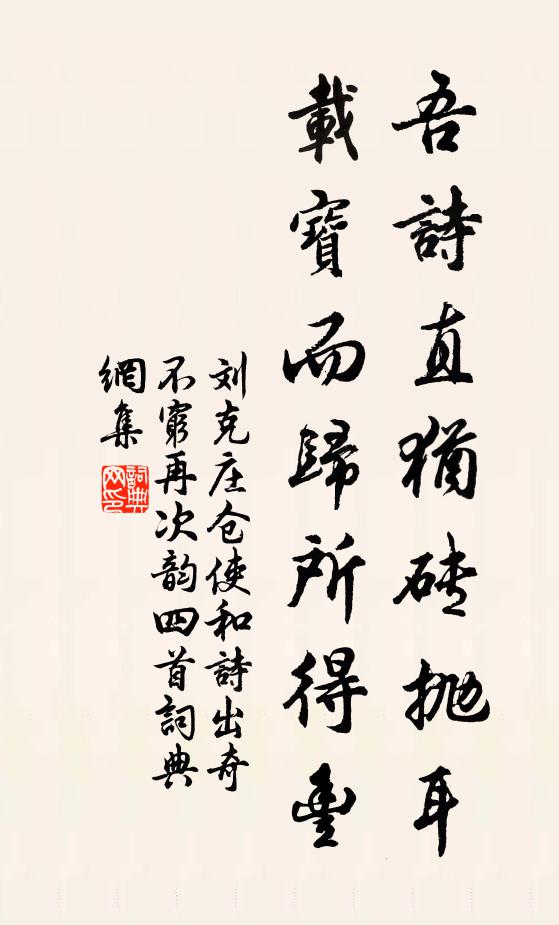 吾詩直猶磚抛耳
載寶而歸所得豐
刘克庄仓使和詩出奇
不窮再次韵四首詞典
網集
詞典網印